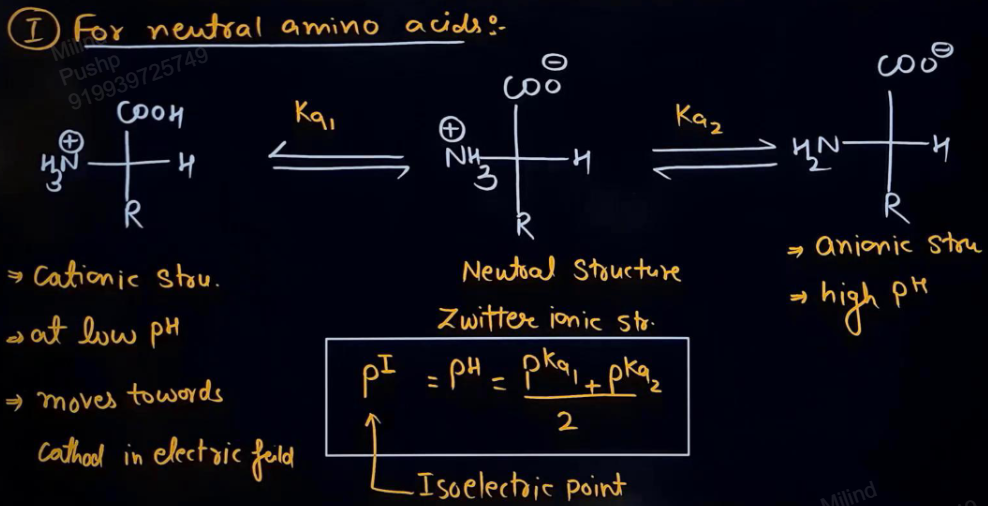 I For neutral amino acids:-
Milind
Pushp
919939725749
COOH
⊕
H3N
H
R
Ka1
COO⊖
⊕
NH3
H
R
Ka2
COO⊖
H2N
H
R
⇒ Cationic stru.
⇒ at low pH
⇒ moves towords
Cathod in electric feild
Neutral Structure
Zwitter ionic str.
pI = pH = pKa1 + pKa2
2
Isoelectric point
⇒ anionic stru
⇒ high pH
Milind